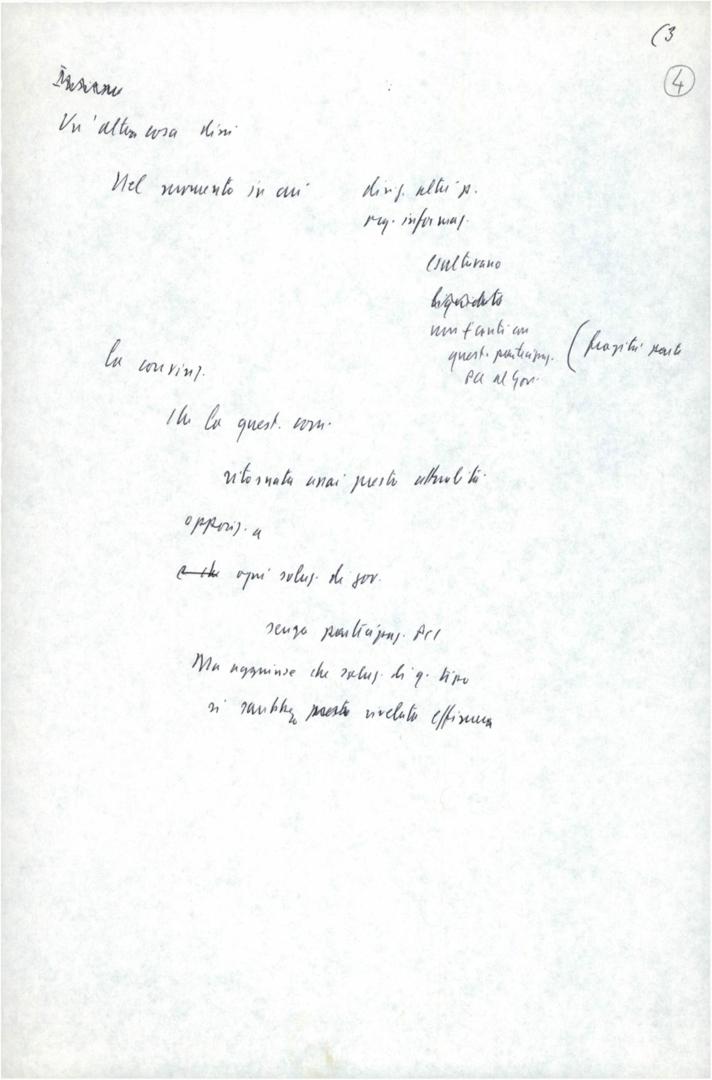 (3
4
Un'altra cosa dissi
Nel momento in cui
dirig. altri p.
org. informaz.
esultavano
liquidata
conti con
quest. partecipaz.
PCI al Gov.
la convinz.
che la quest. com.
ritornata assai presto attualità
opposiz. a
ogni soluz. di gov.
senza partecipaz. PCI
Ma aggiunse che soluz. di q. tipo
si sarebbe presto rivelata effimera